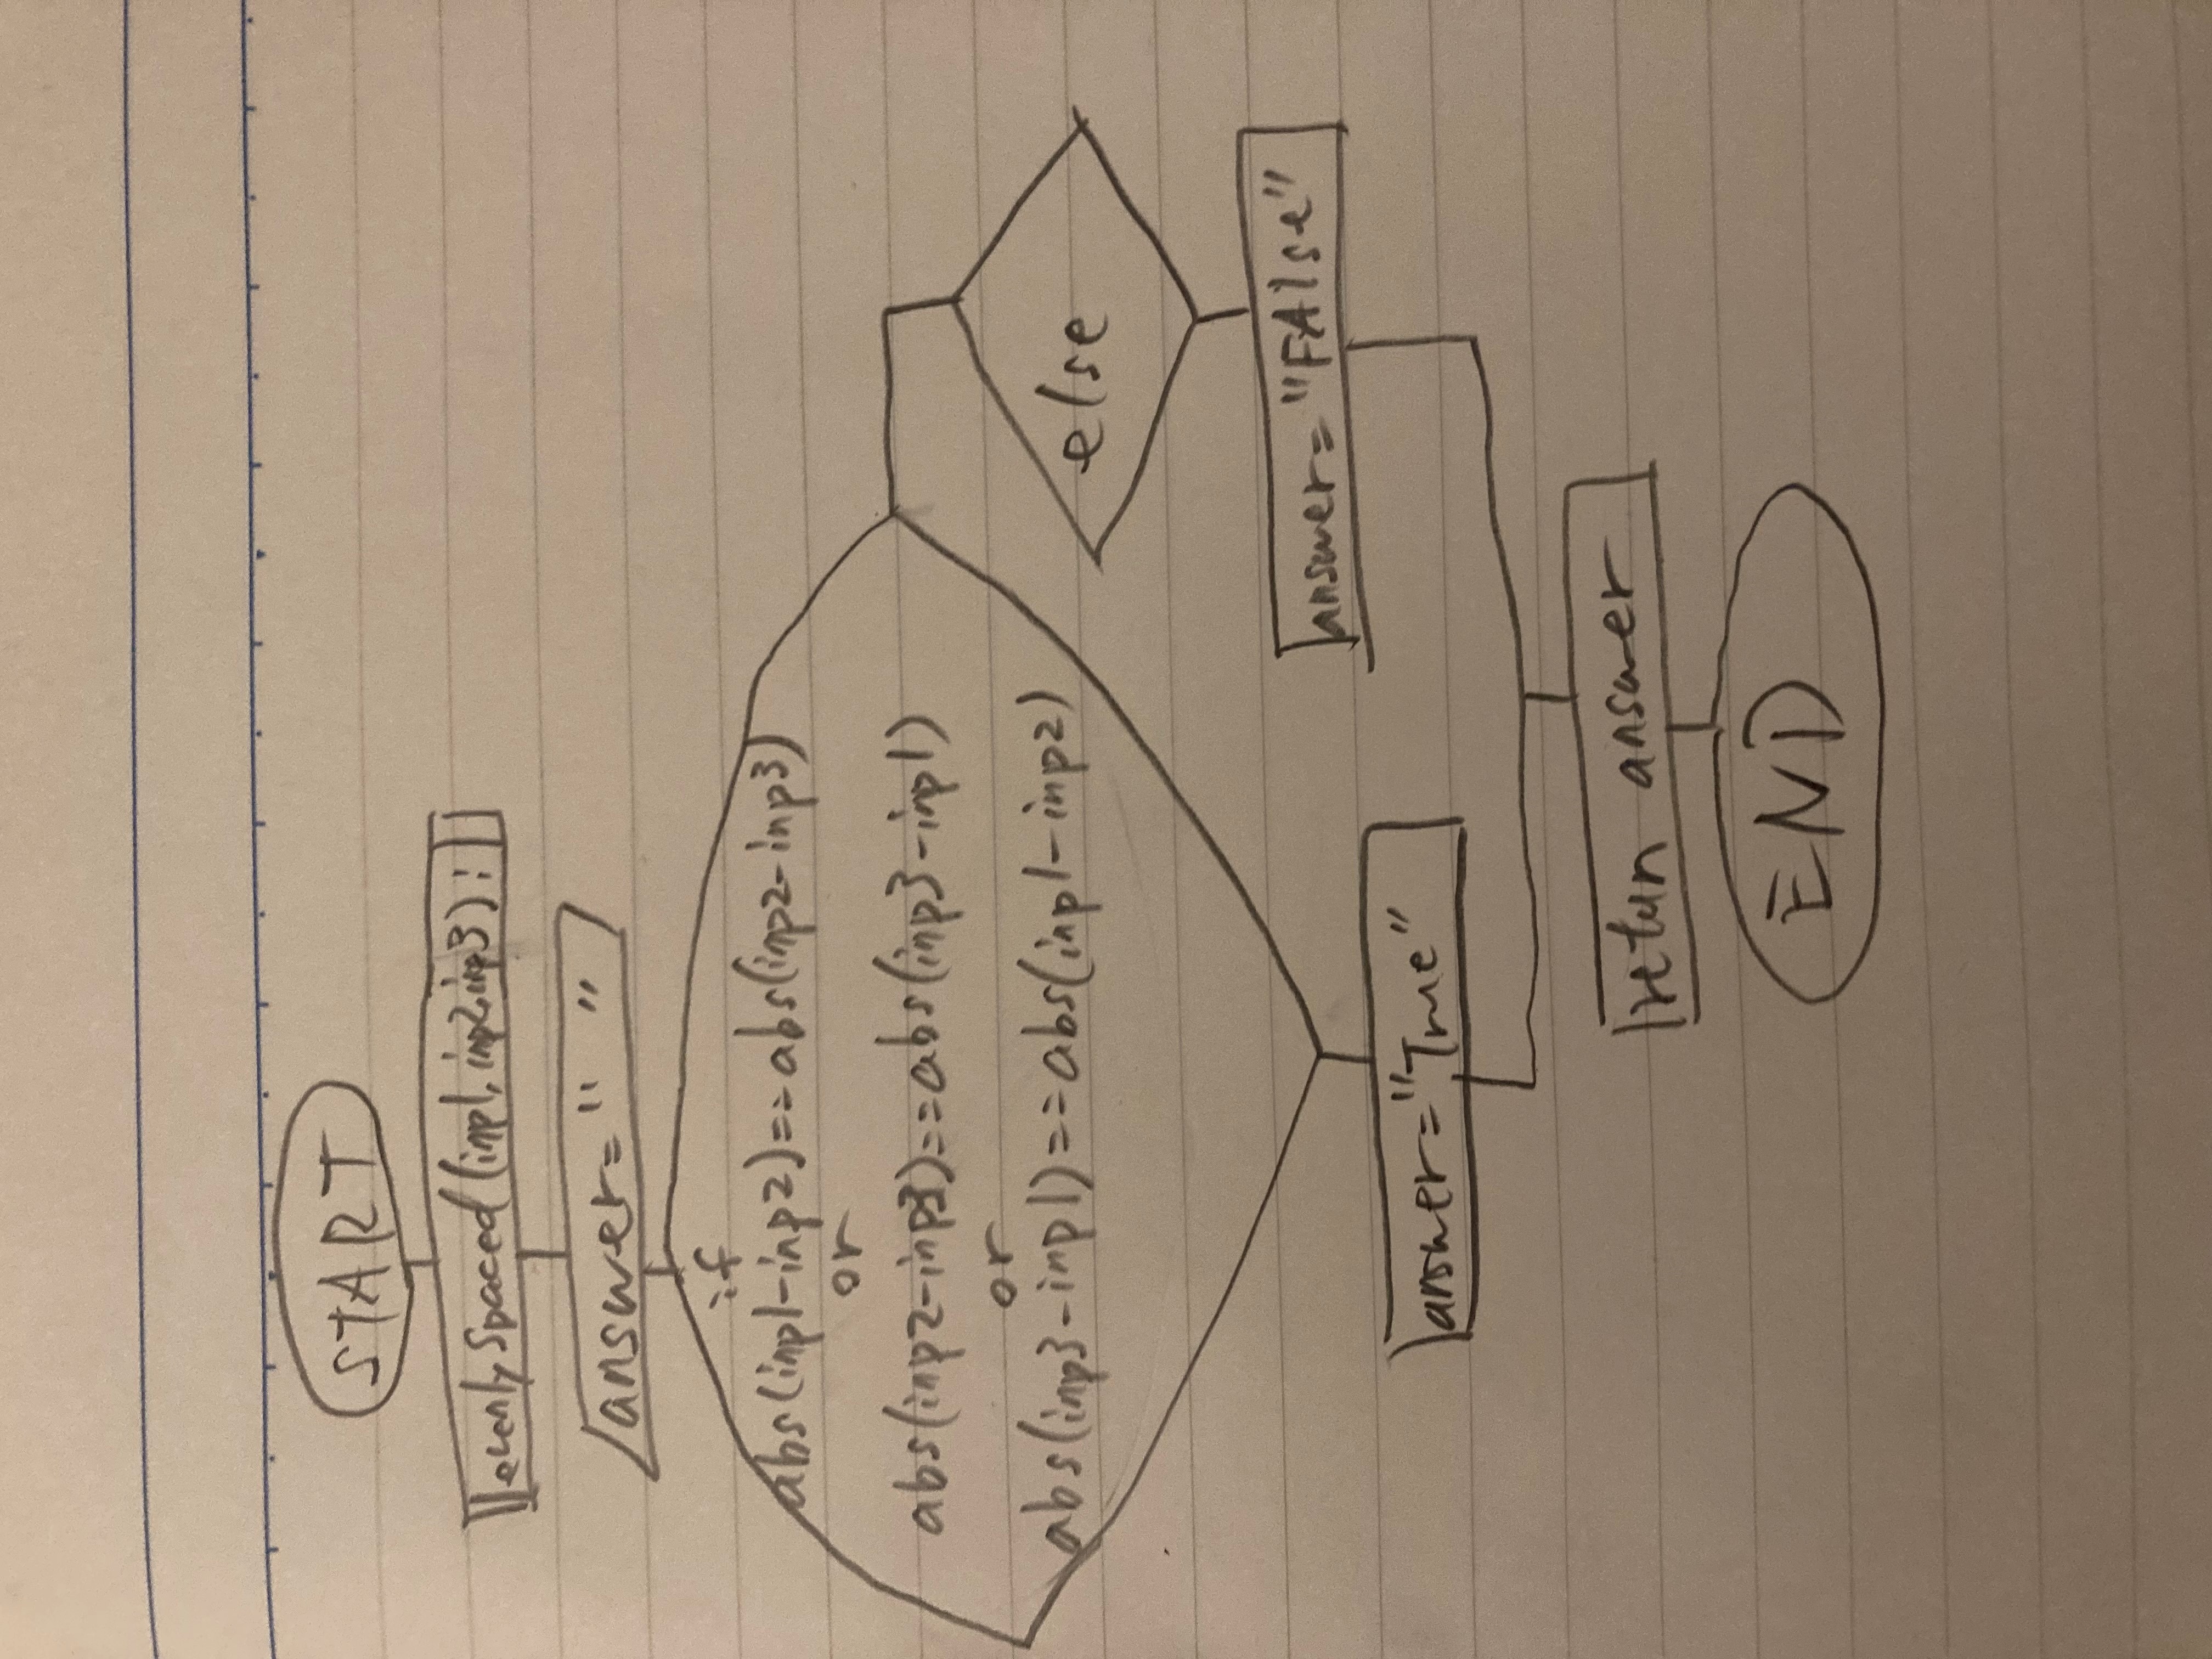 START
evenlySpaced(inp1,inp2,inp3):
answer=" "
if
abs(inp1-inp2)==abs(inp2-inp3)
or
abs(inp2-inp3)==abs(inp3-inp1)
or
abs(inp3-inp1)==abs(inp1-inp2)
else
answer="True"
answer="FAlse"
return answer
END